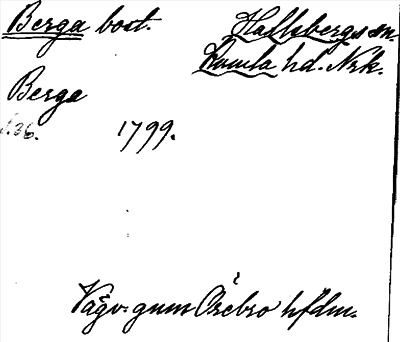 Berga bost. Hallsbergs sn.
Kumla hd. Nrk.
Berga
s. 36. 1799.
Vägv. gnm Örebro hfdm.